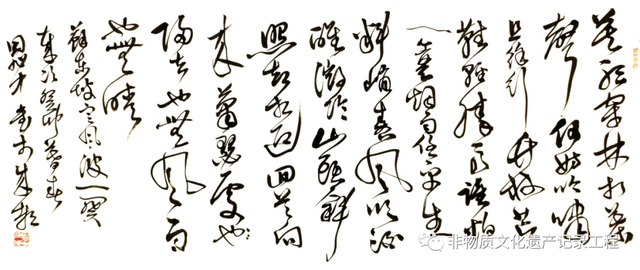 莫听穿林打叶
声何妨吟啸
且徐行竹杖芒
鞋轻胜马谁怕
一蓑烟雨任平生
料峭春风吹酒
醒微冷山头斜
照却相迎回首向
来萧瑟处
归去也无风雨
也无晴
苏东坡定风波一阕
岁次癸卯暮春
非物质文化遗产记录工程